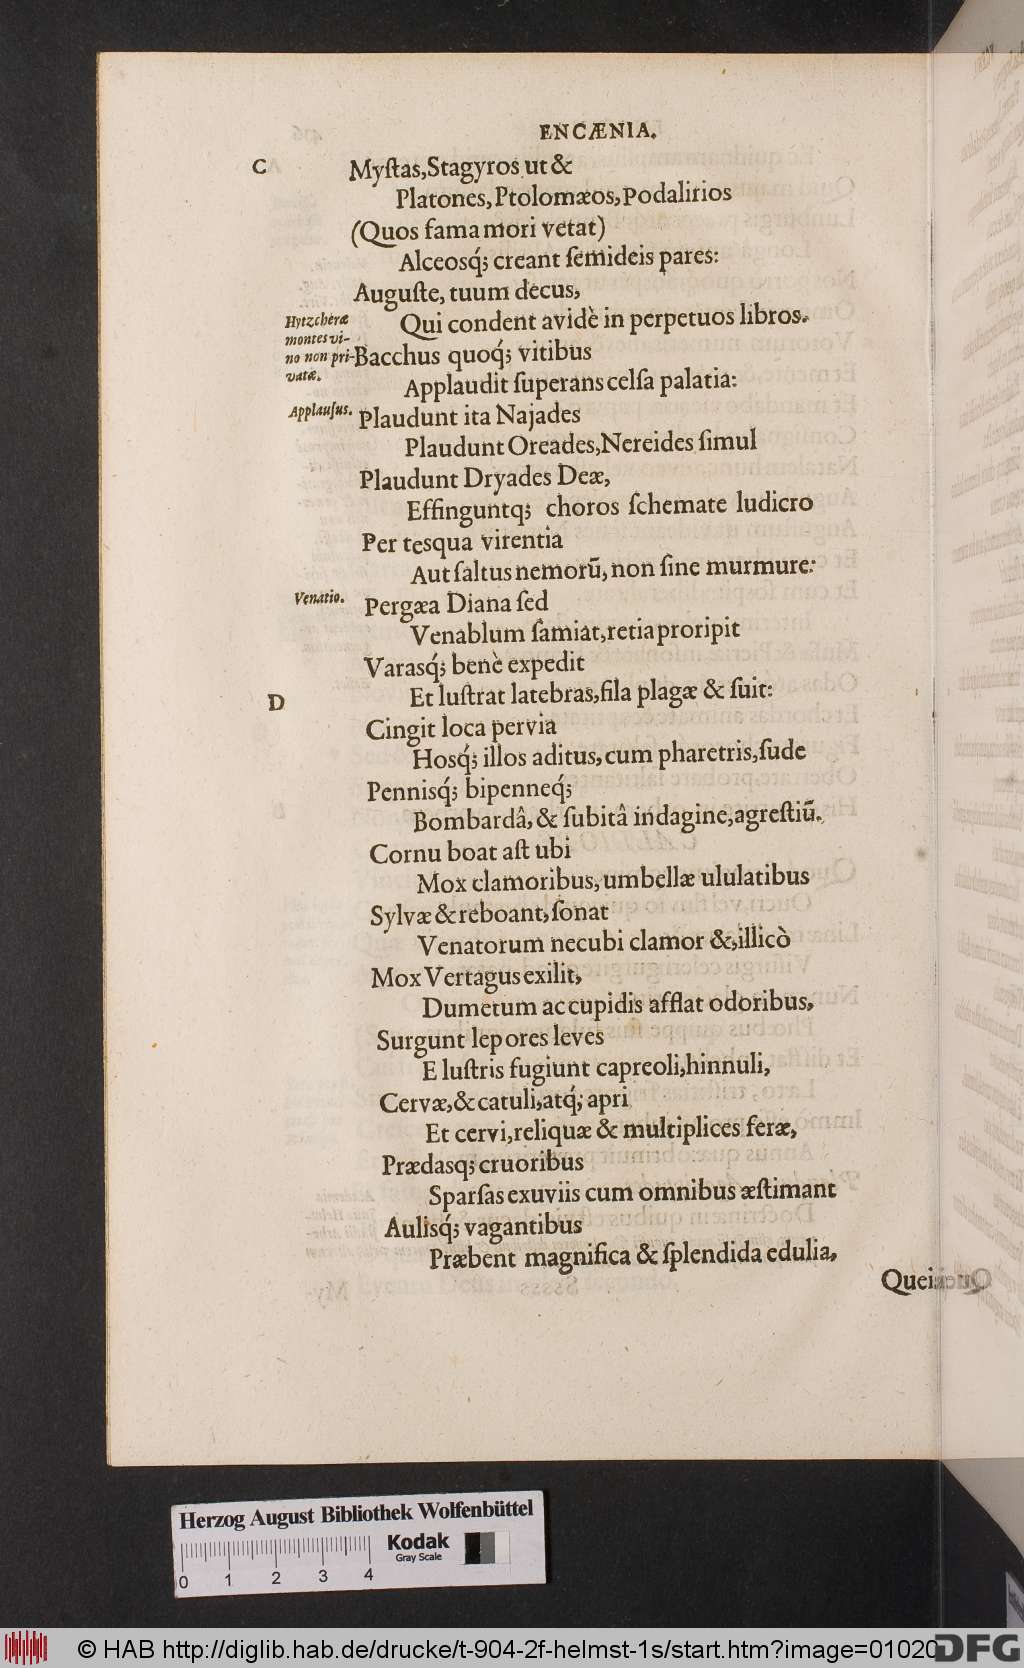 ENCÆNIA.
C
Myſtas, Stagyros ut &
Platones, Ptolomæos, Podalirios
(Quos fama mori vetat)
Alceosq́; creant ſemideis pares:
Auguſte, tuum decus,
Qui condent avidè in perpetuos libros.
Hytzcheræ
montes vi-
no non pri-
vatæ.
Bacchus quoq́; vitibus
Applaudit ſuperans celſa palatia:
Applauſus.
Plaudunt ita Najades
Plaudunt Oreades, Nereides ſimul
Plaudunt Dryades Deæ,
Effinguntq; choros ſchemate ludicro
Per tesqua virentia
Aut ſaltus nemorũ, non ſine murmure:
Venatio.
Pergæa Diana ſed
Venablum ſamiat, retia proripit
Varasq́; benè expedit
D
Et luſtrat latebras, fila plagæ & ſuit:
Cingit loca pervia
Hosq́; illos aditus, cum pharetris, ſude
Pennisq́; bipenneq́;
Bombardâ, & ſubitâ indagine, agreſtiũ.
Cornu boat aſt ubi
Mox clamoribus, umbellæ ululatibus
Sylvæ & reboant, ſonat
Venatorum necubi clamor &, illicò
Mox Vertagus exilit,
Dumetum ac cupidis afflat odoribus,
Surgunt lepores leves
E luſtris fugiunt capreoli, hinnuli,
Cervæ, & catuli, atq́; apri
Et cervi, reliquæ & multiplices feræ,
Prædasq; cruoribus
Sparſas exuviis cum omnibus æſtimant
Aulisq́; vagantibus
Præbent magnifica & ſplendida edulia,
Quei
Herzog August Bibliothek Wolfenbüttel
Kodak
Gray Scale
0 1 2 3 4
© HAB http://diglib.hab.de/drucke/t-904-2f-helmst-1s/start.htm?image=01020
DFG